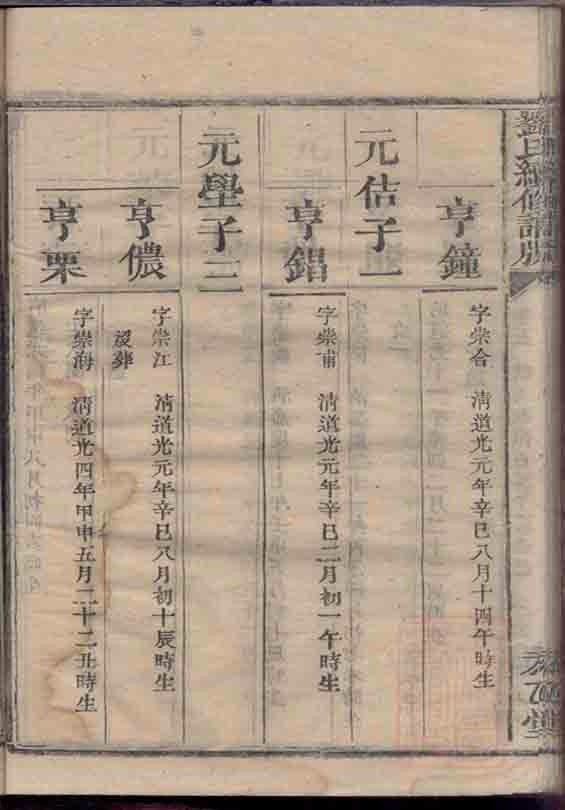 亨鐘
字崇合 清道光元年辛巳八月十四午時生
元佶子一
亨錩
字崇甫 清道光元年辛巳二月初一午時生
元學子三
亨儂
字崇江 清道光元年辛巳八月初十辰時生
殁葬
亨栗
字崇海 清道光四年甲申五月二十二丑時生